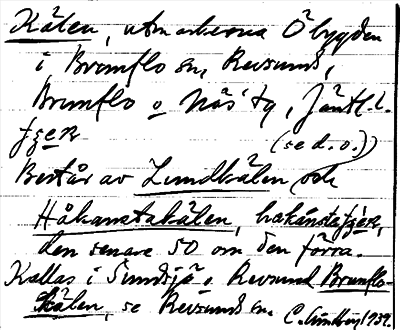 Kälen, utmarkerna Öbygden
i Brunflo sn, Revsunds,
Brunflo o Näs tg, Jämtl. l.
(se d. o.))
Består av Lundkälen och
Håkanstakälen,
den senare SO om den förra.
Kallas i Sundsjö o Revsund Brunflo-
kälen, se Revsunds sn. C. Lindberg 1934.